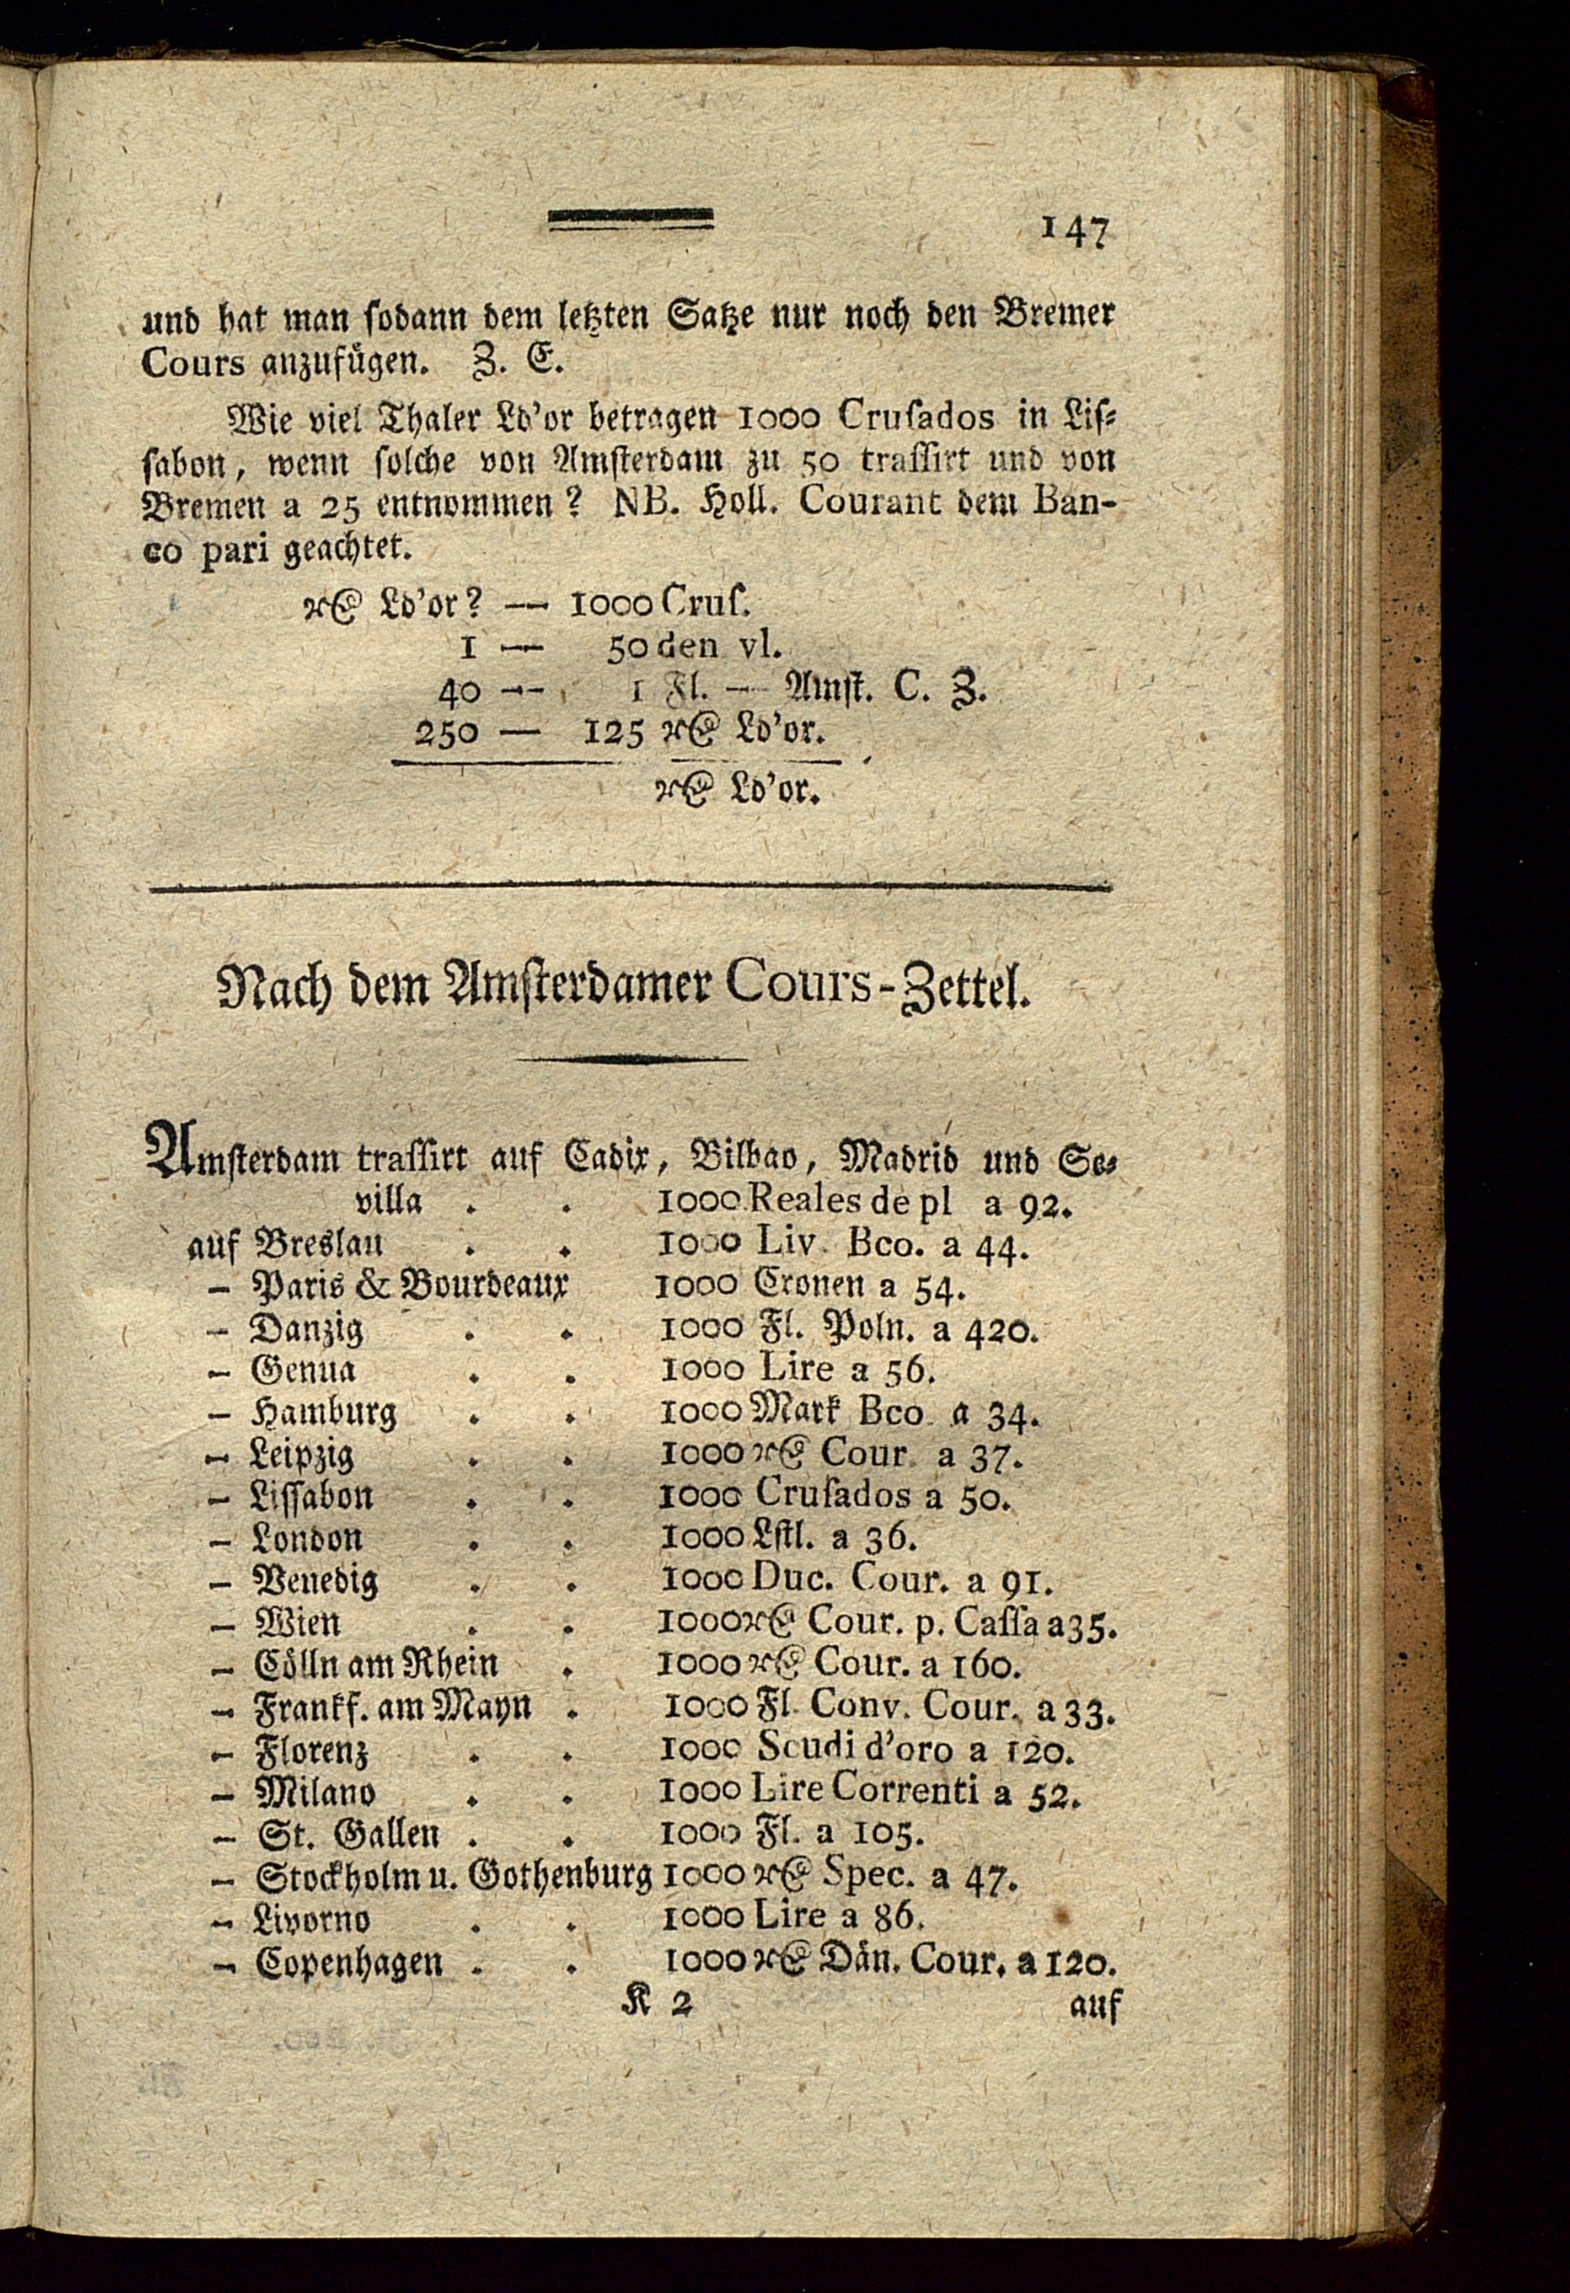 147
und hat man sodann dem letzten Satze nur noch den Bremer
Cours anzufügen. Z. E.
Wie viel Thaler Ld'or betragen 1000 Cruſados in Liſ-
sabon, wenn solche von Amsterdam zu 50 traſſirt und von
Bremen a 25 entnommen? NB. Holl. Courant dem Ban-
co pari geachtet.
Rthlr Ld'or? — 1000 Cruſ.
1 — 50 den vl.
40 — 1 Fl. — Amst. C. Z.
250 — 125 Rthlr Ld'or.
Rthlr Ld'or.
Nach dem Amsterdamer Cours-Zettel.
Amsterdam traſſirt auf Cadix, Bilbao, Madrid und Se-
villa . . 1000 Reales de pl a 92.
auf Breslau . . 1000 Liv. Bco. a 44.
– Paris & Bourdeaux 1000 Cronen a 54.
– Danzig . . 1000 Fl. Poln. a 420.
– Genua . . 1000 Lire a 56.
– Hamburg . . 1000 Mark Bco. a 34.
– Leipzig . . 1000 Rthlr Cour. a 37.
– Lissabon . . 1000 Cruſados a 50.
– London . . 1000 Lstl. a 36.
– Venedig . . 1000 Duc. Cour. a 91.
– Wien . . 1000 Rthlr Cour. p. Caſſa a 35.
– Cölln am Rhein . 1000 Rthlr Cour. a 160.
– Frankf. am Mayn . 1000 Fl. Conv. Cour. a 33.
– Florenz . . 1000 Scudi d'oro a 120.
– Milano . . 1000 Lire Correnti a 52.
– St. Gallen . . 1000 Fl. a 105.
– Stockholm u. Gothenburg 1000 Rthlr Spec. a 47.
– Livorno . . 1000 Lire a 86.
– Copenhagen . . 1000 Rthlr Dän. Cour. a 120.
K 2 auf